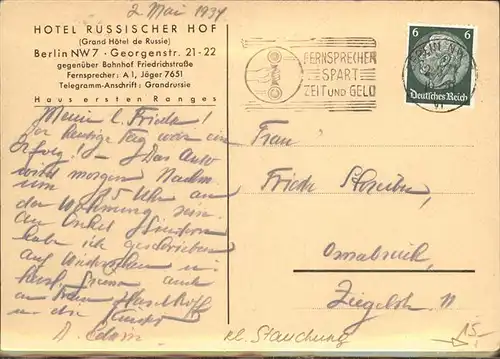 2 Mai 1934
HOTEL RUSSISCHER HOF
(Grand Hôtel de Russie)
Berlin NW7 · Georgenstr. 21-22
gegenüber Bahnhof Friedrichstraße
Fernsprecher: A1, Jäger 7651
Telegramm-Anschrift: Grandrussie
Haus ersten Ranges
Meine l. Friede!
Der heutige Tag war ein
Erfolg! – Das Auto
wird morgen Nachm.
um 5 Uhr an
der Wohnung sein.
An Onkel
habe ich geschrieben
auf Wiedersehen
auch
an Frau
u. die Kinder
FERNSPRECHER
SPART
ZEIT UND GELD
BERLIN NW
6 6
Deutsches Reich
Frau
Osnabrück,
kl. Stauchung
15,-